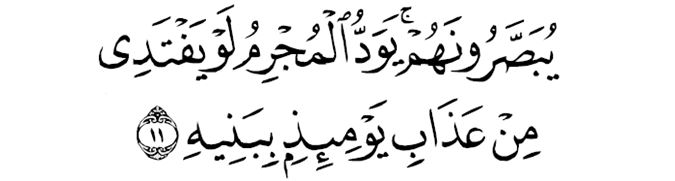 يُبَصَّرُونَهُمْ ۚ يَوَدُّ ٱلْمُجْرِمُ لَوْ يَفْتَدِى
مِنْ عَذَابِ يَوْمِئِذِۭ بِبَنِيهِ ١١